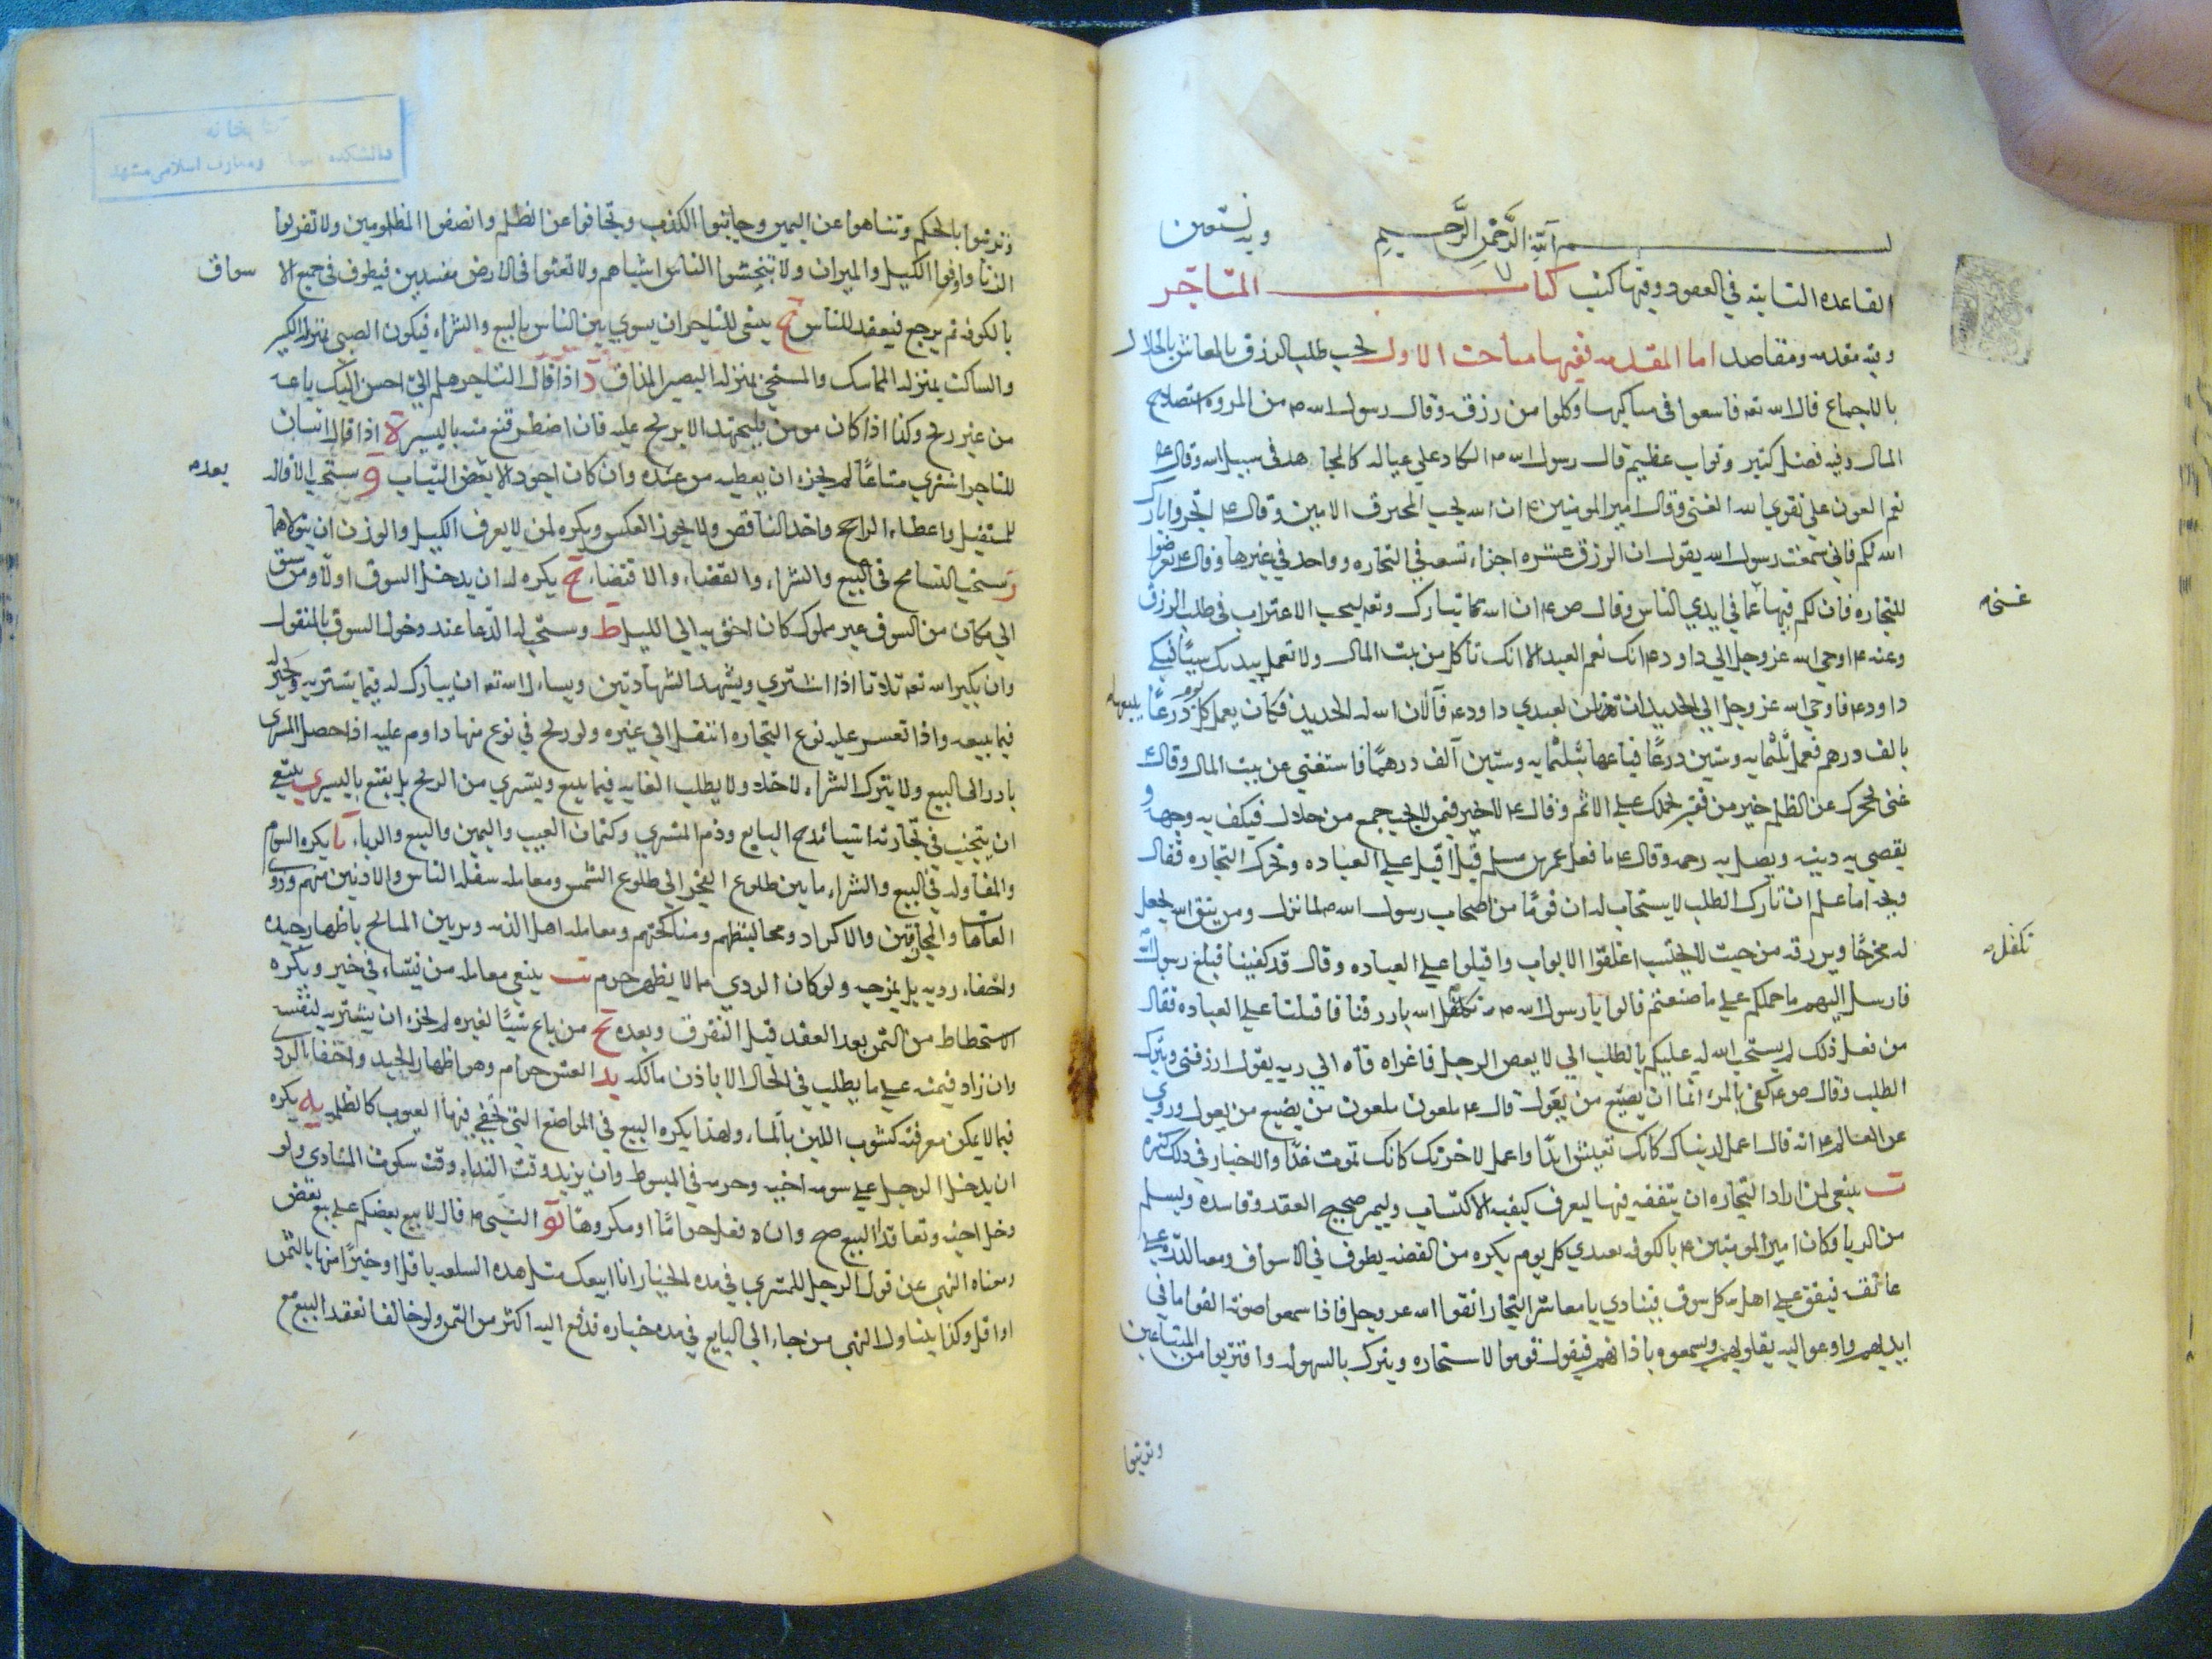 بسم الله الرحمن الرحيم وبه نستعين
القاعده الثانيه في العقود وفيها كتب كتاب المتاجر
وفيه مقدمه ومقاصد اما المقدمه ففيها مباحث الاول يجب طلب الرزق بالمعاش بالحلال
بالاجماع قال الله تعه فامشوا في مناكبها وكلوا من رزقه وقال رسول الله ص من المروه استصلاح
المال وفيه فضل كثير وثواب عظيم قال رسول الله ص الكاد على عياله كالمجاهد في سبيل الله وقال ع
نعم العون على تقوي الله الغنى وقال امير المومنين ع ان الله يحب المحترف الامين وقال ع اتجروا بارك
الله لكم فاني سمعت رسول الله يقول ان الرزق عشره اجزاء تسعه في التجاره وواحد في غيرها وقال ع تعرضوا
للتجاره فان لكم فيها عما في ايدي الناس وقال ص ع ان الله تبارك وتعه ليحب الاغتراب في طلب الرزق
غنى
وعنه ع اوحى الله عز وجل الى داود ع انك نعم العبد الا انك تاكل من بيت المال ولا تعمل بيدك شيئا فبكى
داود ع فاوحى الله عز وجل الى الحديد ان لعبدي داود ع فالان الله له الحديد فكان يعمل كل يوم درعا يبيعها
بالف درهم فعمل ثلثمايه وستين درعا فباعها بثلثمايه وستين الف درهما فاستغنى عن بيت المال وقال ع
غنى يحجزك عن الظلم خير من فقر يحملك على الاثم وقال ع لا خير فيمن لا يحب جمع من حلال فيكف به وجهه و
يقضي به دينه ويصل به رحمه وقال ع ما فعل عمر بن مسلم قيل اقبل على العباده وترك التجاره فقال
ويحه اما علم ان تارك الطلب لا يستجاب له ان قوما من اصحاب رسول الله ص لما نزل ومن يتق الله يجعل
له مخرجا ويرزقه من حيث لا يحتسب اغلقوا الابواب واقبلوا على العباده وقالوا قد كفينا فبلغ رسول الله
تكفل
فارسل اليهم ما حملكم على ما صنعتم قالوا يا رسول الله ص تكفل الله بارزقنا فاقبلنا على العباده فقال
من فعل ذلك لم يستجب الله له عليكم بالطلب اني لا بغض الرجل فاغراه فاه الى ربه يقول ارزقني ويترك
الطلب وقال ص ع كفى بالمرء اثما ان يضيع من يعول قال ع ملعون ملعون من يضيع من يعول وروى
عن العالم ع انه قال اعمل لدنياك كانك تعيش ابدا واعمل لاخرتك كانك تموت غدا والاخبار في ذلك كثيره
ب ينبغي لمن اراد التجاره ان يتفقه فيها ليعرف كيفيه الاكتساب وليميز صحيح العقد وفاسده وليسلم
من الربا وكان امير المومنين ع بالكوفه يغتدي كل يوم بكره من القصر يطوف في الاسواق ومعه الدره على
عاتقه فيقف على اهل كل سوق فينادي يا معاشر التجار اتقوا الله عز وجل فاذا سمعوا صوته القوا ما في
ايديهم وارعوا اليه بقلوبهم وسمعوه باذانهم فيقول قدموا الاستخاره وتبركوا بالسهوله واقتربوا من المبتاعين
وتزينوا
وتزينوا بالحلم وتناهوا عن اليمين وجانبوا الكذب وتجافوا عن الظلم وانصفوا المظلومين ولا تقربوا
الربا واوفوا الكيل والميزان ولا تبخسوا الناس اشياءهم ولا تعثوا في الارض مفسدين فيطوف في جميع الاسواق
بالكوفه ثم يرجع فيقعد للناس ج ينبغي للتاجر ان يسوي بين الناس بالبيع والشراء فيكون الصبي بمنزله الكبير
والساكت بمنزله المماكس والمستحي بمنزله البصير المذاق د اذا قال التاجر هلم الي احسن اليك باعه
من غير ربح وكذا اذا كان مومن فليجتهد الا يربح عليه فان اضطر قنع منه باليسير ه اذا قال انسان
للتاجر اشتري متاعا لم يجزه ان يعطيه من عنده وان كان اجود الا بعض الثياب و ستحب الاقاله
بعده
للمستقيل واعطاء الراجح واخذ الناقص ولا يجوز العكس ويكره لمن لا يعرف الكيل والوزن ان يتولاهما
ز ستحب التسامح في البيع والشراء والقضاء والاقتضاء ح يكره له ان يدخل السوق اولا ومن سبق
الى مكان من السوق غير مملوك كان احق به الى الليل ط وستحب له الدعا عند دخول السوق بالمنقول
وان يكبر الله تعه ثلاثا اذا اشتري ويشهد الشهادتين ويسال الله تعه ان يبارك له فيما يشتريه ويخير له
فيما يبيعه واذا تعسر عليه نوع التجاره انتقل الى غيره ولو ربح في نوع منها داوم عليه اذا حصل المشتري
بادر الى البيع ولا يترك الشراء لاخلا ولا يطلب الغايه فيما يبيع ويشري من الربح بل يقنع باليسير ي ينبغي
ان يتجنب في تجارته اشيا مدح البايع وذم المشتري وكتمان العيب واليمين والبيع والرباء يا يكره السوم
والمقاوله في البيع والشراء ما بين طلوع الفجر الى طلوع الشمس ومعامله سفله الناس والادنين منهم وذوي
العاهات والمحارفين والاكراد ومخالطتهم ومناكحتهم ومعامله اهل الذمه وتزيين المتاع باظهار جيده
واخفاء رديه بل يمزجه ولو كان الردي مما لا يظهر حرم يب ينبغي معامله من نشاء في خير ويكره
الاستحطاط من الثمن بعد العقد قبل التفرق وبعده يج من باع شيئا لغيره لم يجزه ان يشتريه لنفسه
وان زاد في ثمنه على ما يطلب في الحال الا باذن مالكه يد الغش حرام وهو اظهار الجيد واخفا الردي
فيما لا يمكن معرفته كشوب اللبن بالماء ولهذا يكره البيع في المواضع التي تخفى فيها العيوب كالظله يه يكره
ان يدخل الرجل على سومه اخيه وحرمه في المبسوط وان يزيد وقت النداء وقت سكوت المنادي ولو
دخل اخيه وتعاقد البيع صح وان فعل حراما او مكروها يو النبي ص قال لا يبيع بعضكم على بيع بعض
ومعناه النهي عن قول الرجل للمشتري في مده الخيار انا ابيعك مثل هذه السلعه باقل او خيرا منها بالثمن
او اقل وكذا يتناول النهي من جاء الى البايع في مده خياره ندفع اليه اكثر من الثمن ولو خالفا انعقد البيع مع